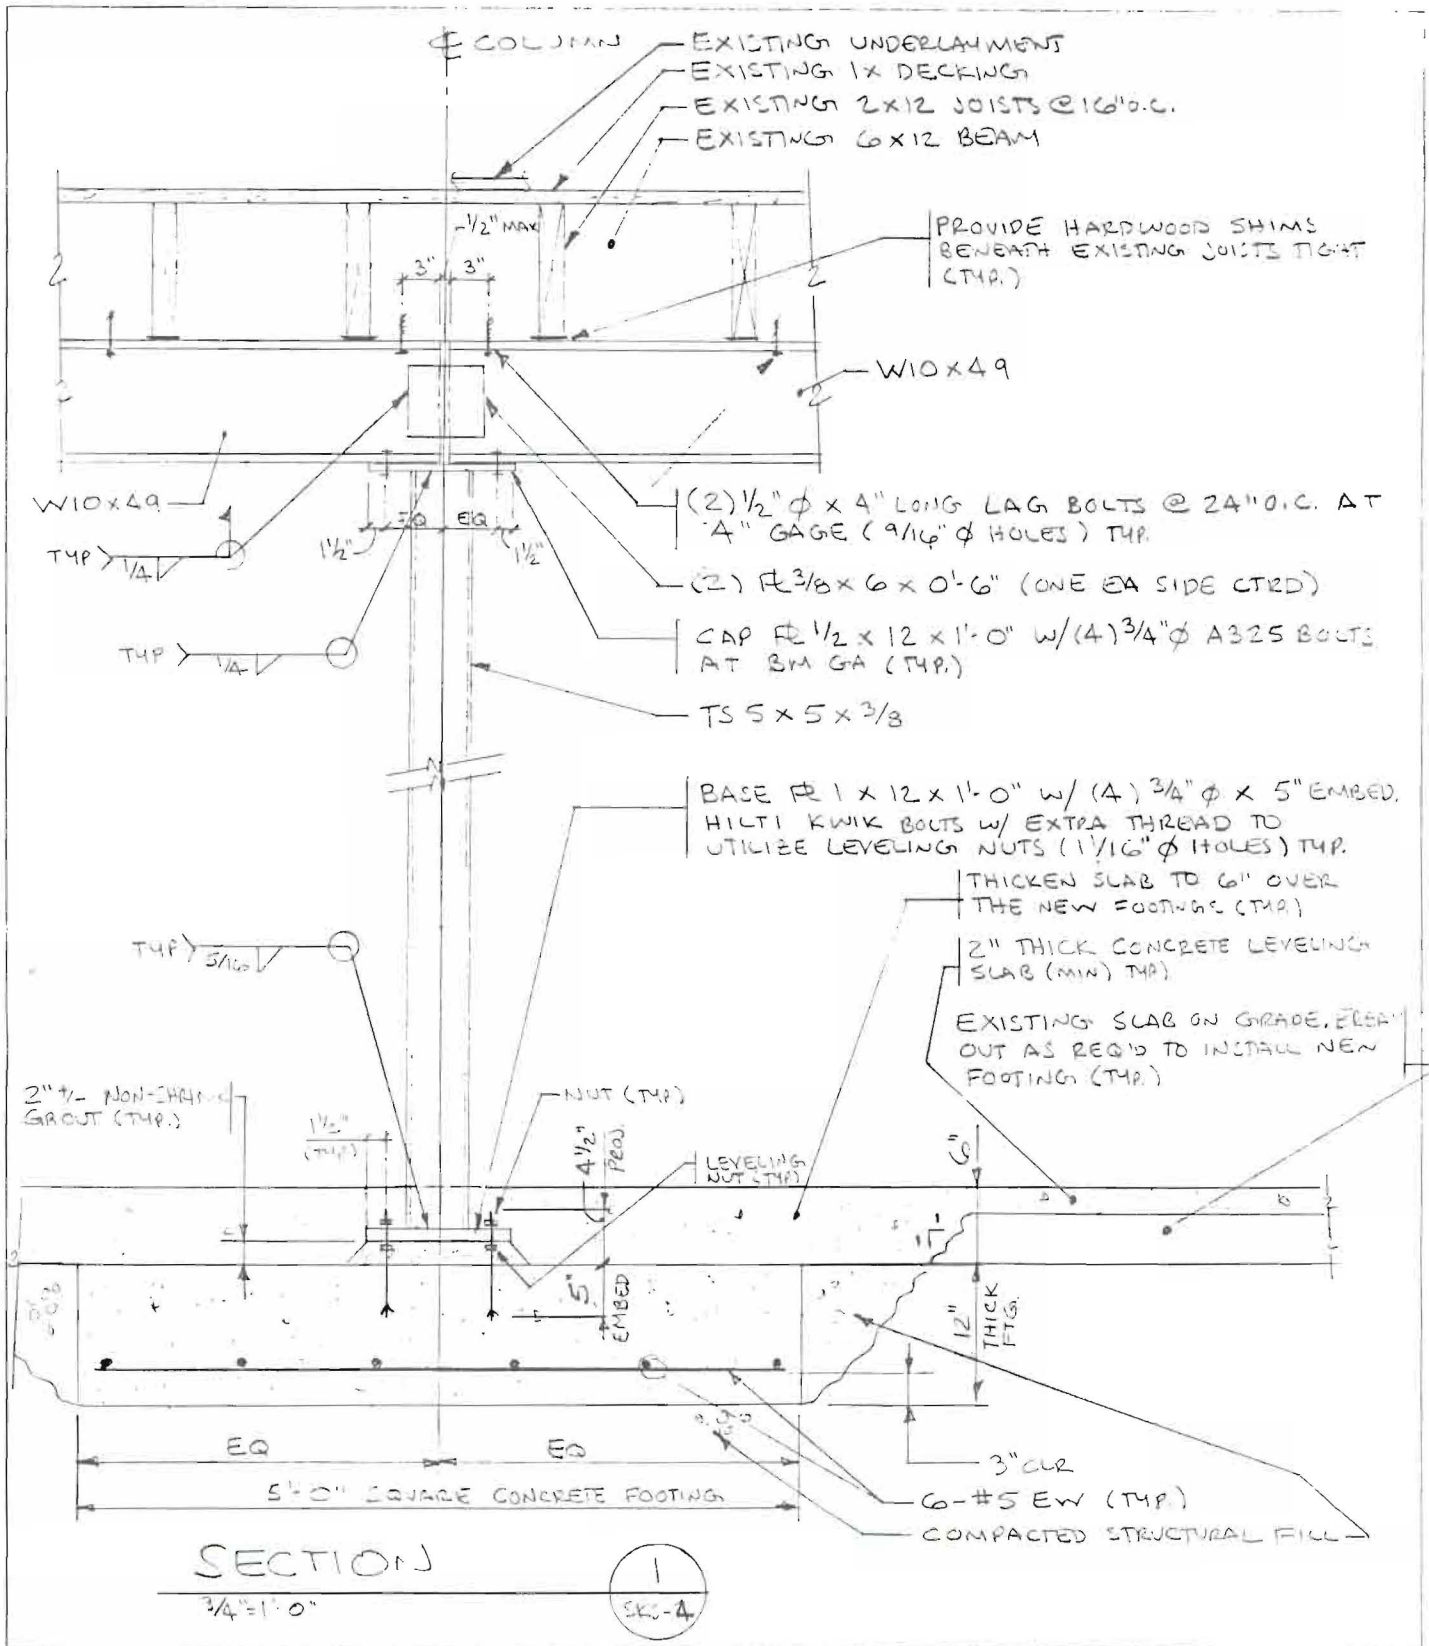 ℄ COLUMN
EXISTING UNDERLAYMENT
EXISTING 1X DECKING
EXISTING 2X12 JOISTS @ 16" O.C.
EXISTING 6X12 BEAM
1/2" MAX
3" 3"
PROVIDE HARDWOOD SHIMS
BENEATH EXISTING JOISTS TIGHT
(TYP.)
W10X49
W10X49
(2) 1/2" φ X 4" LONG LAG BOLTS @ 24" O.C. AT
4" GAGE (9/16" φ HOLES) TYP.
EQ EQ
1 1/2" 1 1/2"
TYP 1/4
(2) PL 3/8 X 6 X 0'-6" (ONE EA SIDE CTRD)
CAP PL 1/2 X 12 X 1'-0" W/ (4) 3/4" φ A325 BOLTS
AT BM GA (TYP.)
TYP 1/4
TS 5 X 5 X 3/8
BASE PL 1 X 12 X 1'-0" W/ (4) 3/4" φ X 5" EMBED.
HILTI KWIK BOLTS W/ EXTRA THREAD TO
UTILIZE LEVELING NUTS (1 1/16" φ HOLES) TYP.
THICKEN SLAB TO 6" OVER
THE NEW FOOTINGS (TYP.)
TYP 5/16
2" THICK CONCRETE LEVELING
SLAB (MIN) TYP)
EXISTING SLAB ON GRADE,
OUT AS REQ'D TO INSTALL NEW
FOOTING (TYP.)
2" +/- NON-SHRINK
GROUT (TYP.)
NUT (TYP)
1 1/2"
(TYP.)
4 1/2"
PROJ.
LEVELING
NUT (TYP)
6"
5"
EMBED
12"
THICK
FTG.
EQ EQ
3" CLR
5'-0" SQUARE CONCRETE FOOTING
6-#5 EW (TYP.)
COMPACTED STRUCTURAL FILL
SECTION
3/4"=1'-0"
1
SKS-4